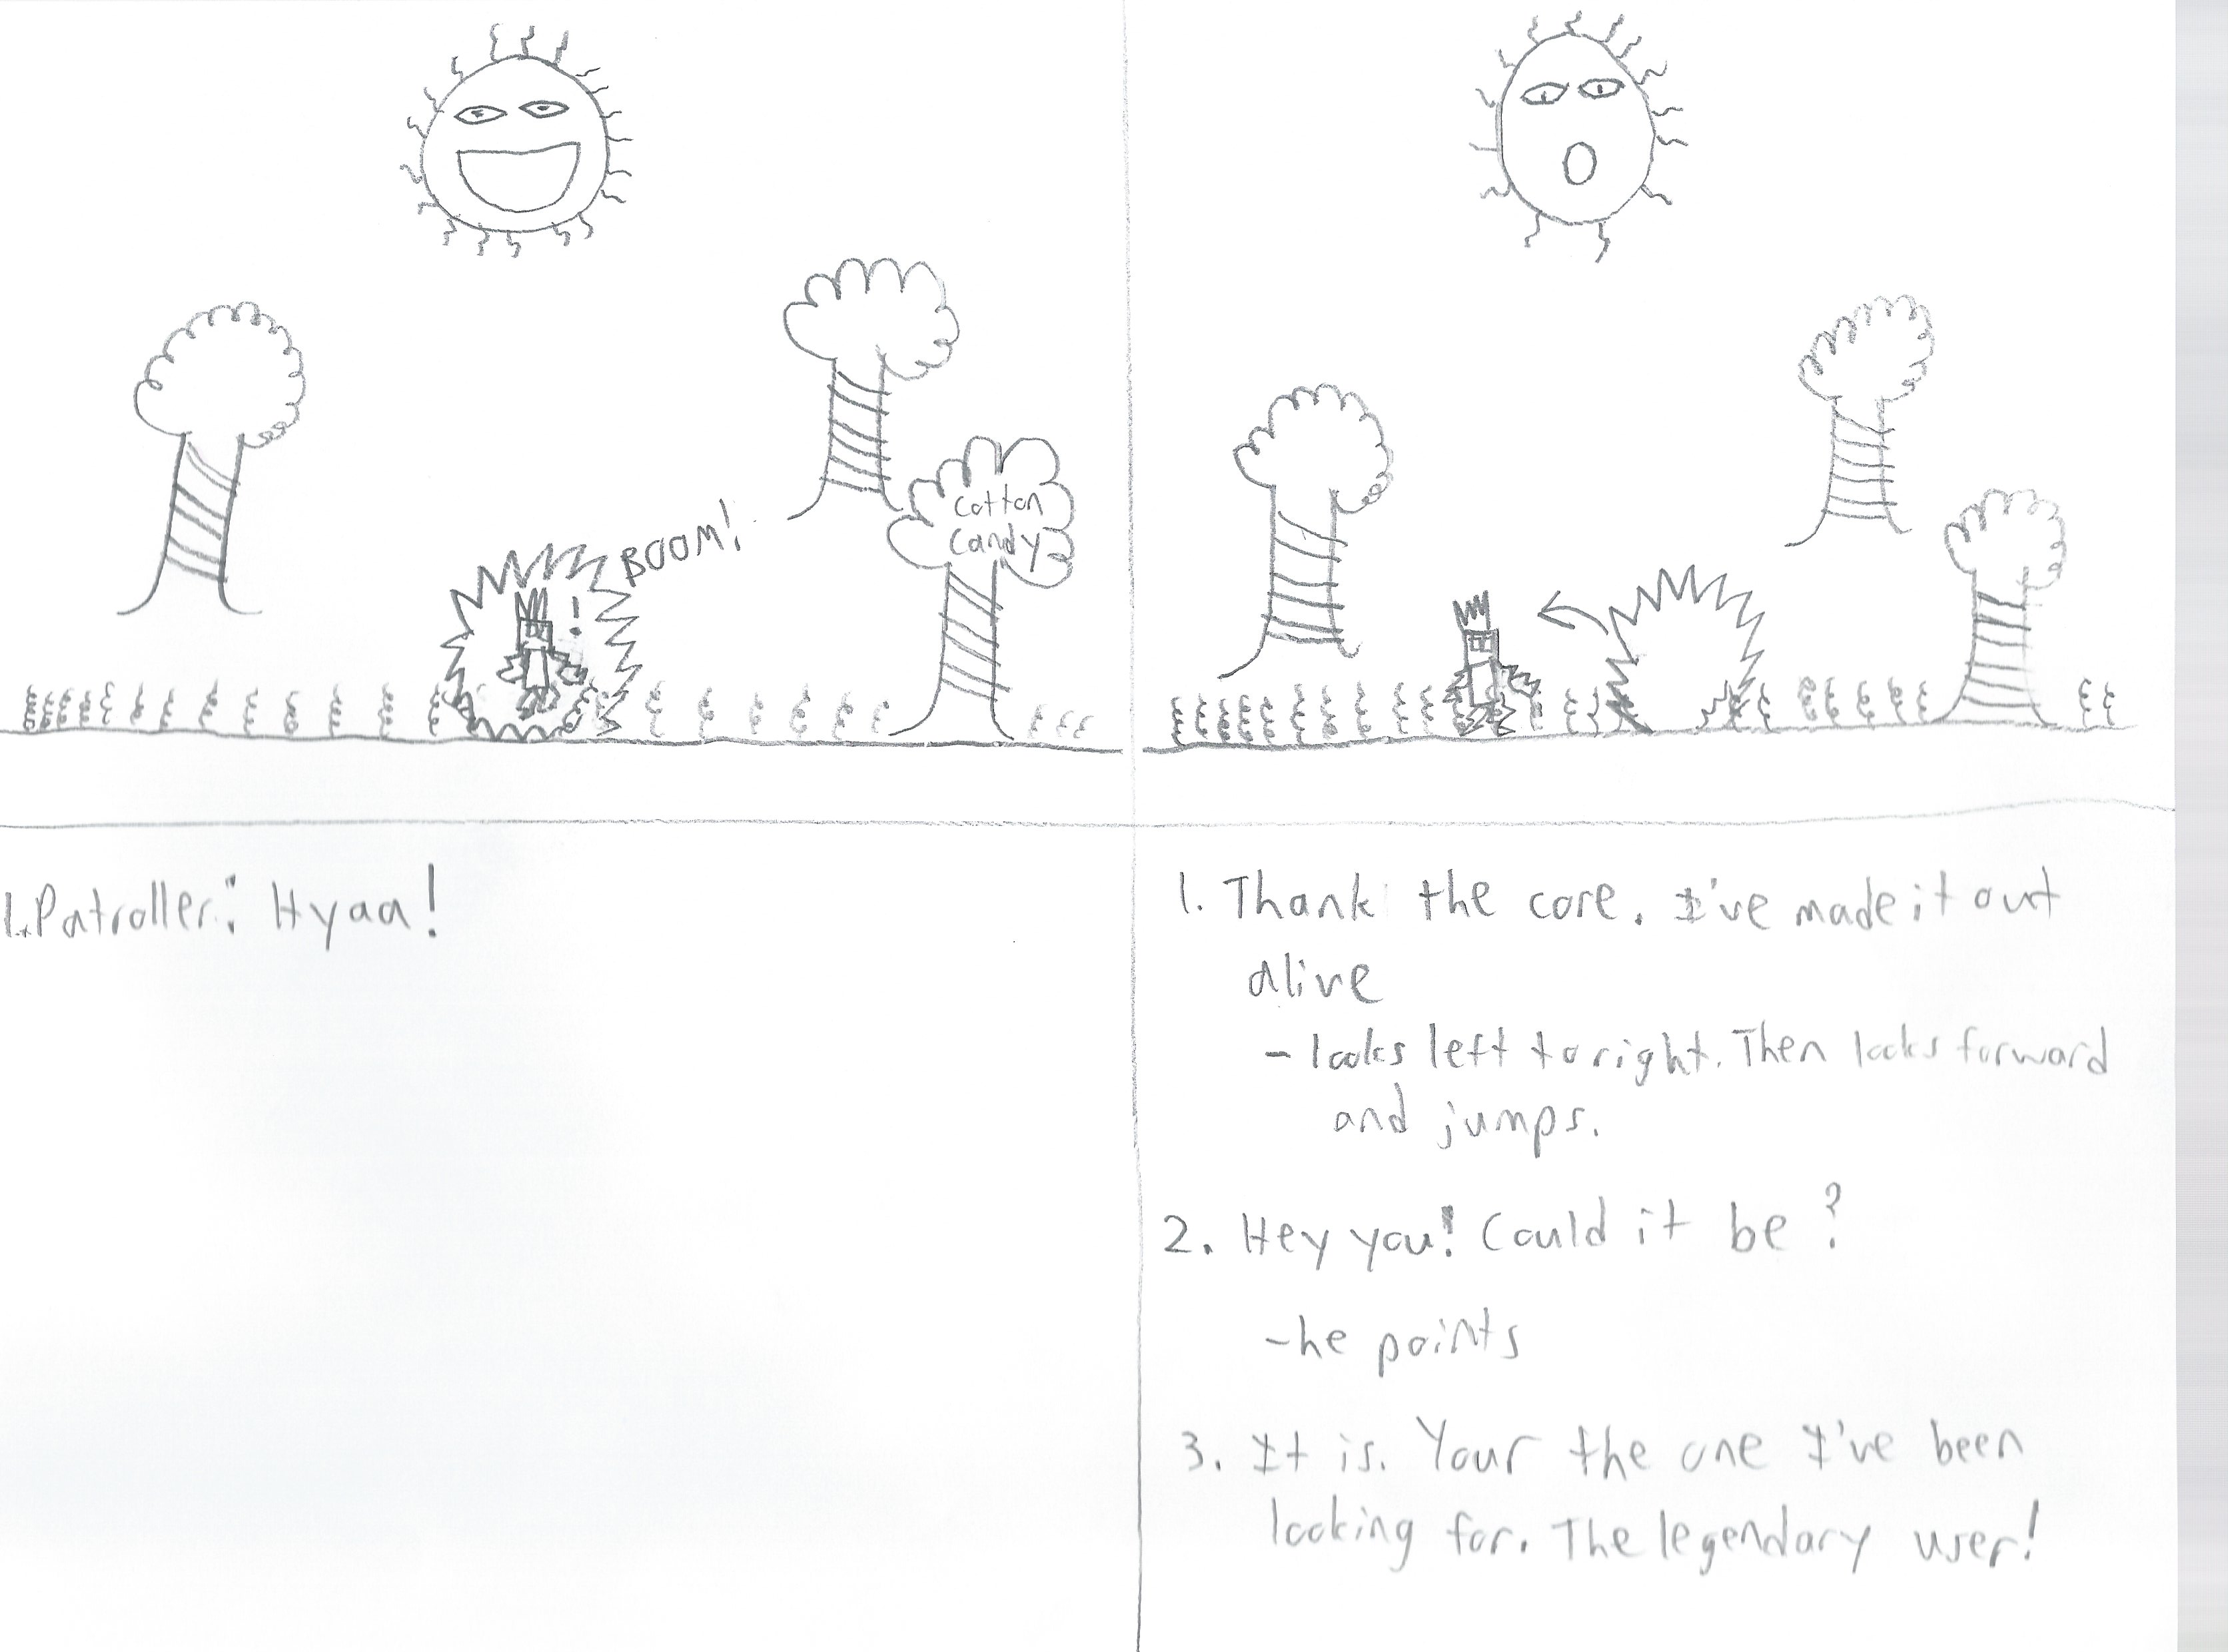 BOOM!
!
Cotton
Candy
1. Patroller: Hyaa!
1. Thank the core. I've made it out
alive
- looks left to right. Then looks forward
and jumps.
2. Hey you! Could it be?
- he points
3. It is. Your the one I've been
looking for. The legendary user!